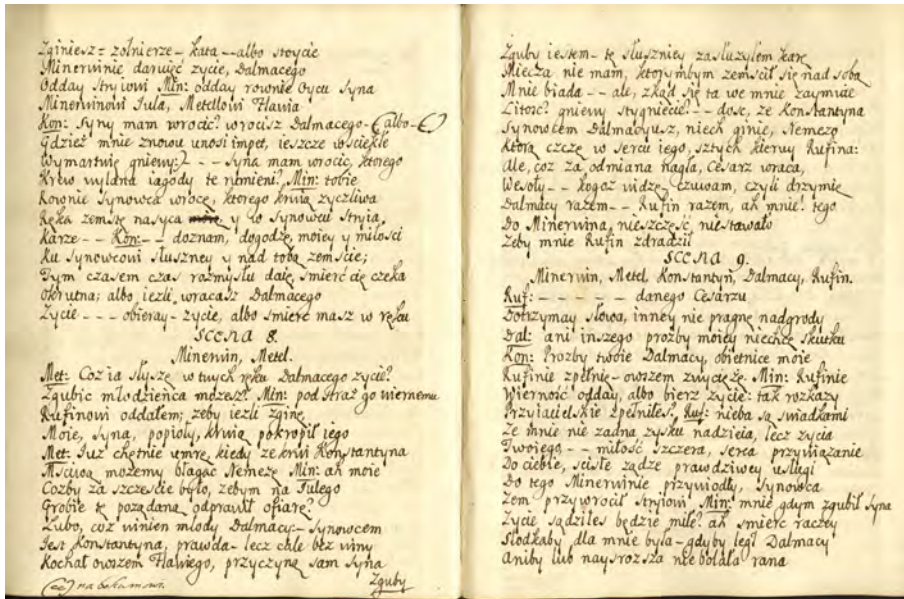 Zginiesz = zołnierze – kata –– albo stoycie
Minerwinie daruięć zycie, Dalmacego
Odday Stryiowi Min: odday rownie Oycu Syna
Minerwinowi Jula, Metellowi Flawia
Kon: Syny mam worocic? worocisz Dalmacego – (albo –
Gdzież mnie znowu unosi impet, ieszcze wsciekłe
Wymartwię gniewy:) – – Syna mam worocic, ktorego
Krew wylana iagody te rumieni? Min: tobie
Rownie Synowca worocę, ktorego krwią zyczliwa
Ręka zemstę nasyca y w Synowcu Stryia,
Karze – – Kon: – – doznam, dogodzę, moiey y miłosci
Ku Synowcowi słuszney y nad tobą zemscie;
Tym czasem czas rozmysłu daię, smierć cię czeka
Okrutna; albo iezli wracasz Dalmacego
Zycie – – – obieray – zycie, albo smierć masz w ręku
SCENA 8.
Minerwin, Metel.
Met: Coz ia słyszę w twych ręku Dalmacego zycie?
Zgubic młodzieńca mozesz? Min: pod straż go wiernemu
Rufinowi oddałem; zeby iezli zginę,
Moie, Syna, popioły, krwią pokropił iego
Met: Już chętnie umrę, kiedy ze krwi Konstantyna
Msciwą mozemy błagać Nemezę Min: ah moie
Cozby za szczescie było, zebym na Julego
Grobie tę poządaną odprawił ofiarę?
Lubo, coż winien młody Dalmacy – Synowcem
Jest Konstantyna, prawda – lecz chłe bez winy
Kochał owszem Flawiego, przyczynę sam Syna
na boku mow.
Zguby
Zguby iestem – tę słuszniey zasłuzyłem karę
Miecza nie mam, ktorymbym zemscił się nad sobą
Mnie biada – – ale, zkąd się ta we mnie zaymuie
Litosc? gniewy stygniecie? – – dosc, że Konstantyna
Synowcem Dalmacyusz, niech ginie, Nemezo
Ktorą czczę w sercu iego, sztych kieruy Rufina:
Ale, coż za odmiana nagła, Cesarz wraca,
Wesoły – – kogoż widzę – czuwam, czyli drzymię
Dalmacy razem – – Rufin razem, ah mnie! tego
Do Minerwina, nieszczęść, niestawało
Zeby mnie Rufin zdradził
SCENA 9.
Minerwin, Metel Konstantyn, Dalmacy, Rufin.
Ruf: – – – – – – danego Cesarzu
Dotrzymay słowa, inney nie pragnę nadgrody
Dal: ani inszego prozby moiey niechcę skutku
Kon: Prozby twoie Dalmacy, obietnice moie
Rufinie zpełnię – owszem zwyciężę. Min: Rufinie
Wierność odday, albo bierz zycie: tak rozkazy
Przyiacielskie zpełniłeś? Ruf: nieba są swiadkami
Ze mnie nie zadna zysku nadzieia, lecz zycia
Twoiego – – miłość szczera, serca przywiązanie
Do ciebie, scisłe ządze prawdziwey usługi
Do tego Minerwinie przywiodły, Synowca
Zem przyworocił Stryiowi Min: mnie gdym zgubił Syna
Zycie sądziłes będzie miłe? ah smierć raczey
Słodkaby dla mnie była – gdyby legł Dalmacy
Aniby lub naysrozsza nie bolała rana